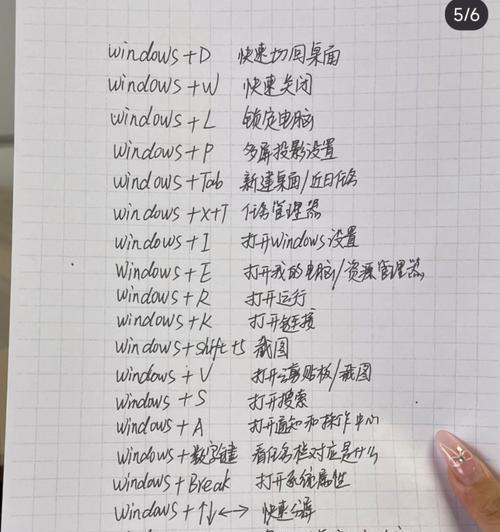 5/6
windows+D 快速切回桌面
windows+W 快速关闭
windows+L 锁定电脑
windows+P 多屏投影设置
windows+Tab 新建桌面/近日任务
windows+x+T 任务管理器
windows+I 打开windows设置
windows+E 打开我的电脑/资源管理器
windows+R 打开运行
windows+K 打开链接
windows+shift+s 截图
windows+V 打开剪贴板/截图
windows+S 打开搜索
windows+A 打开通知和操作中心
windows+数字键 看任务栏对应是什么
windows+Break 打开系统属性
windows+↑↓←→ 快速分屏